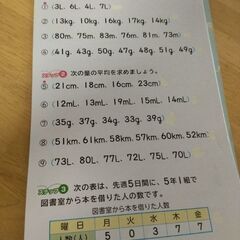 ① (3L. 6L. 4L. 7L.)
② (13kg. 10kg. 16kg. 17kg. 14kg)
③ (80m. 75m. 83m. 76m. 81m. 73m)
④ (41g. 45g. 50g. 47g. 48g. 51g. 49g)
ステップ2 次の量の平均を求めましょう。
⑤ (21cm. 18cm. 16cm. 23cm)
⑥ (12mL. 13mL. 15mL. 19mL. 14mL)
⑦ (35g. 37g. 34g. 39g. 33g)
⑧ (51km. 61km. 58km. 57km. 60km. 52km)
⑨ (73L. 78L. 77L. 72L. 75L. 70L)
ステップ3 次の表は、先週5日間に、5年1組で
図書室から本を借りた人の数です。
図書室から本を借りた人数
曜日 月 火 水 木 金
人数(人) 5 0 3 7 7